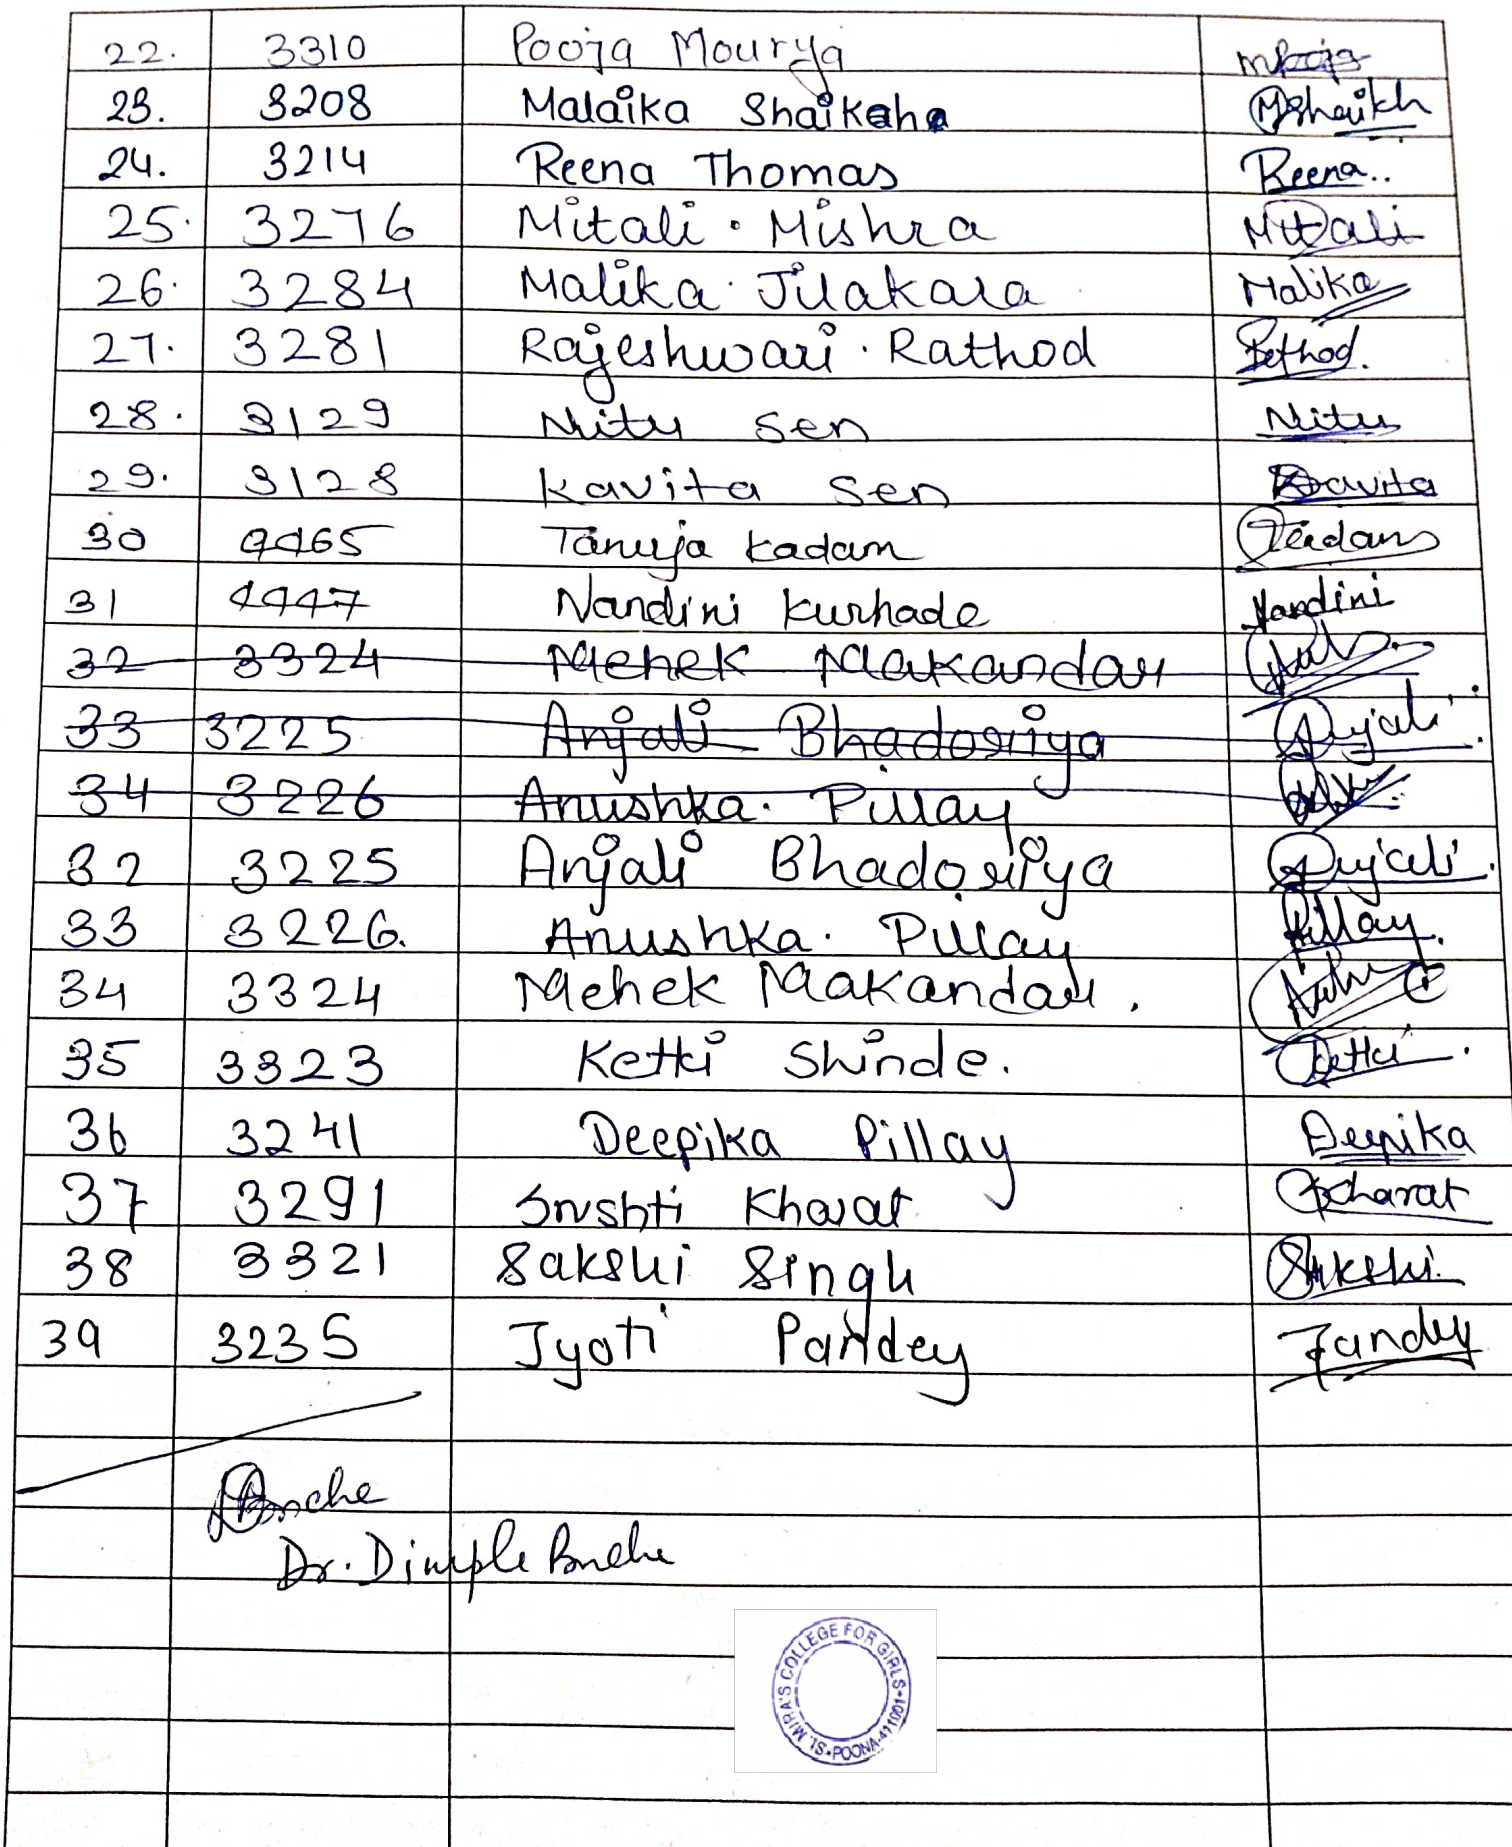 22. 3310 Pooja Mourya mPooja
23. 3208 Malaika Shaikh MShaikh
24. 3214 Reena Thomas Reena..
25. 3276 Mitali . Mishra Mitali
26. 3284 Malika Jilakara Malika
27. 3281 Rajeshwari . Rathod
28. 3129 Nitu Sen Nitu
29. 3128 Kavita Sen Kavita
30 4465 Tanuja Kadam
31 4447 Nandini Kurhade Nandini
32 3324 Mehek Makandar
33 3225 Anjali Bhadoriya Anjali
34 3226 Anushka. Pillay
32 3225 Anjali Bhadoriya Anjali.
33 3226. Anushka. Pillay Pillay.
34 3324 Mehek Makandar.
35 3323 Ketki Shinde. Ketki
36 3241 Deepika Pillay Deepika
37 3291 Srushti Kharat Kharat
38 3321 Sakshi Singh Sakshi.
39 3235 Jyoti Pandey
Dr. Dimple
ST. MIRA'S COLLEGE FOR GIRLS POONA-411001